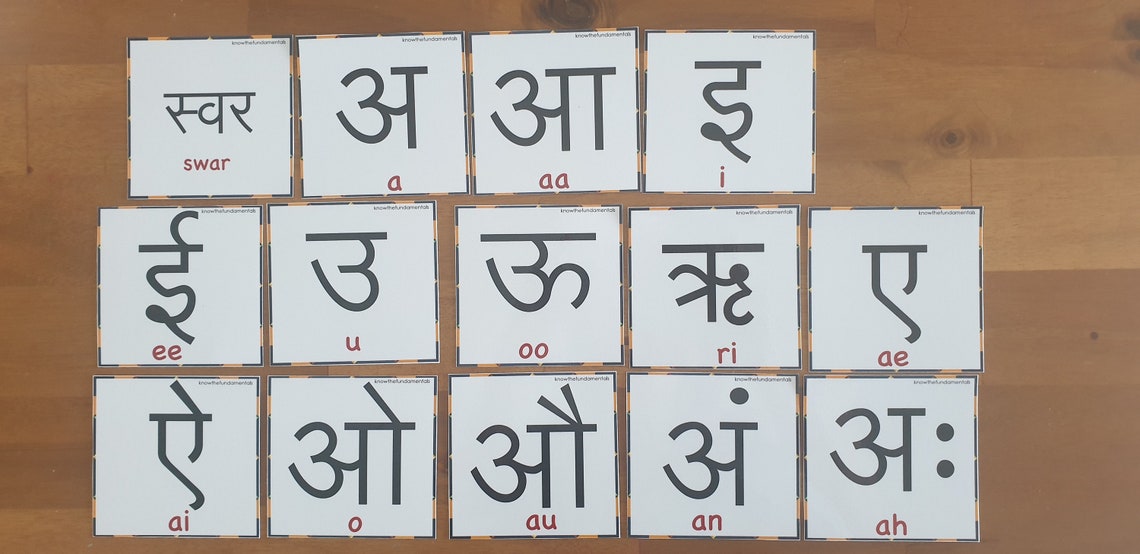 knowthefundamentals
स्वर
swar
knowthefundamentals
अ
a
knowthefundamentals
आ
aa
knowthefundamentals
इ
i
knowthefundamentals
ई
ee
knowthefundamentals
उ
u
knowthefundamentals
ऊ
oo
knowthefundamentals
ऋ
ri
knowthefundamentals
ए
ae
ऐ
ai
knowthefundamentals
ओ
o
knowthefundamentals
औ
au
knowthefundamentals
अं
an
knowthefundamentals
अः
ah